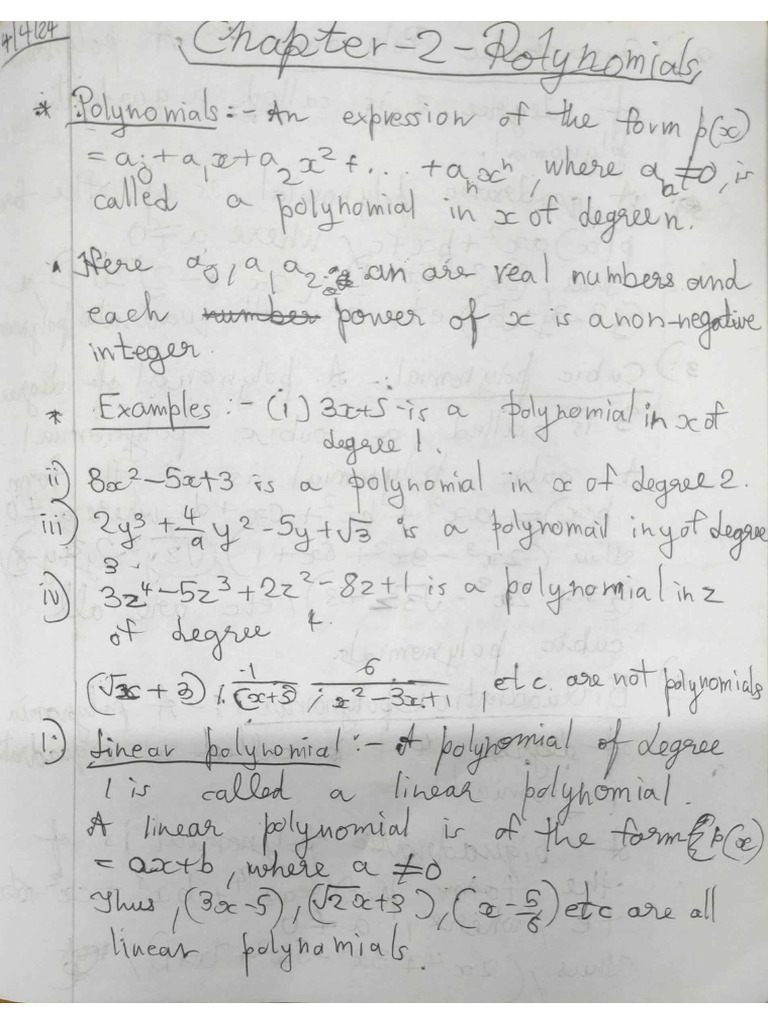 4/4/24
Chapter-2-Polynomials
* Polynomials :- An expression of the form p(x)
= a₀ + a₁x + a₂x² + ... + aₙxⁿ, where aₙ ≠ 0, is
called a polynomial in x of degree n.
Here a₀, a₁ a₂ ... an are real numbers and
each ~~number~~ power of x is a non-negative
integer.
* Examples :- (i) 3x+5 is a polynomial in x of
degree 1.
ii) 8x² - 5x + 3 is a polynomial in x of degree 2.
iii) 2y³ + 4/9 y² - 5y + √3 is a polynomail in y of degree
3.
iv) 3z⁴ - 5z³ + 2z² - 8z + 1 is a polynomial in z
of degree 4.
(√x + 3), 1/(x+3), 6/x² - 3x + 1, etc. are not polynomials
i) Linear polynomial :- A polynomial of degree
1 is called a linear polynomial.
A linear polynomial is of the form p(x)
= ax + b, where a ≠ 0
Thus, (3x - 5), (√2x + 3), (x - 5/6) etc are all
linear polynomials.